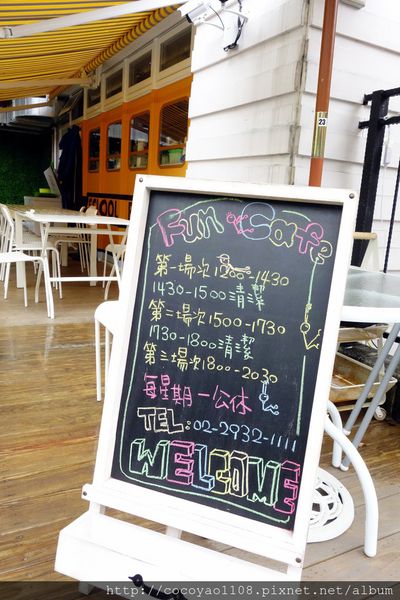 23
SCHOOL
Fun Cafe
第一場次1200-1430
1430-1500清潔
第二場次1500-1730
1730-1800清潔
第三場次1800-2030
每星期一公休
TEL:02-2932-1111
WELCOME
http://cocoyao1108.pixnet.net/album